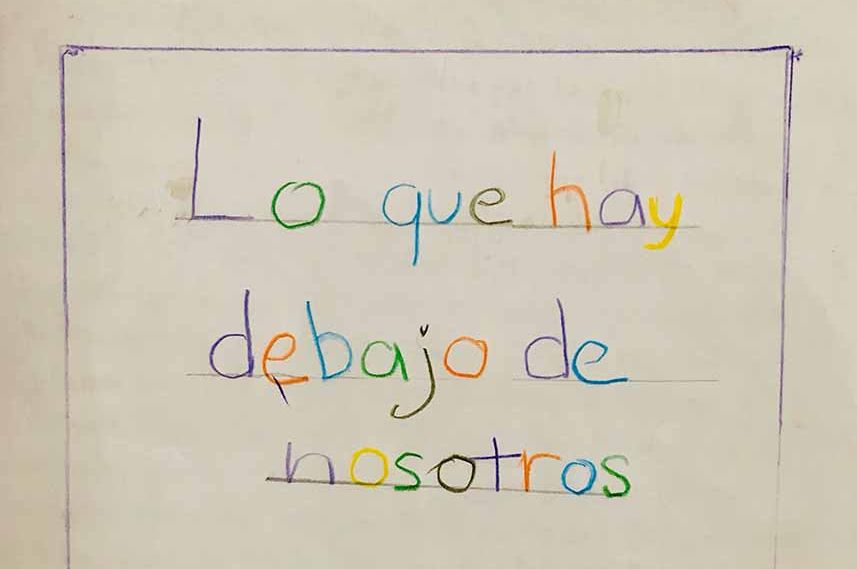 Lo que hay
debajo de
nosotros